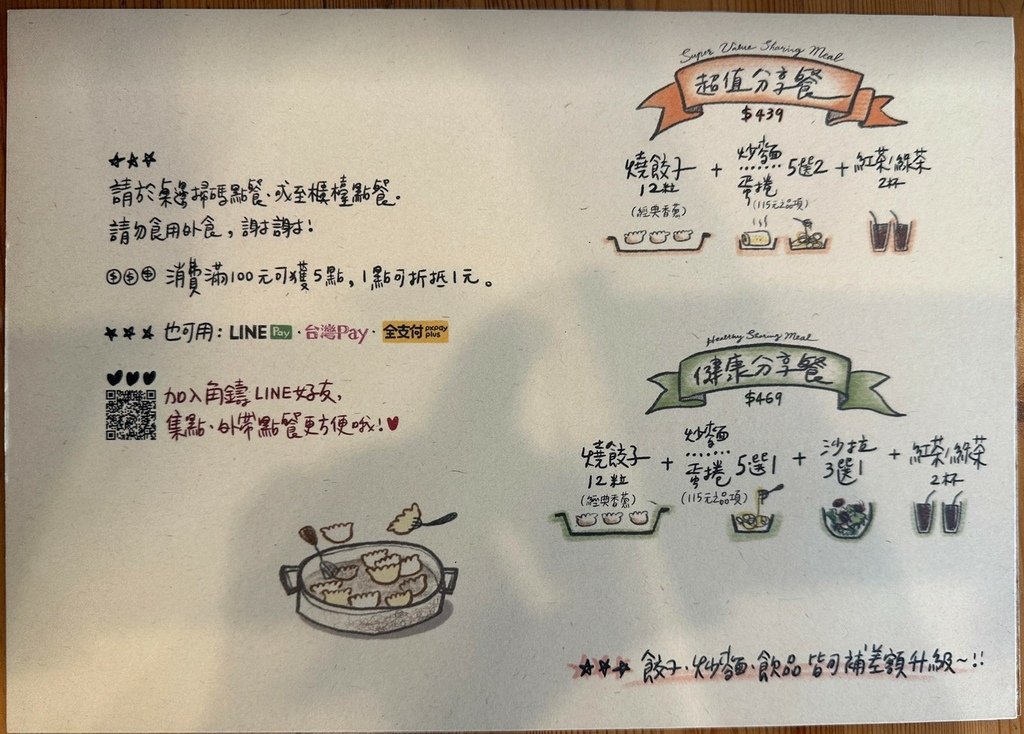 ★★★
請於桌邊掃碼點餐、或至櫃檯點餐。
請勿食用外食,謝謝!
消費滿100元可獲5點,1點可折抵1元。
★★★ 也可用:LINE Pay・台灣Pay・全支付 pxpay plus
加入角鑄LINE好友,
集點、外帶點餐更方便哦!♥
Super Value Sharing Meal
超值分享餐
$439
燒餃子 + 炒麵 蛋捲 5選2 + 紅茶/綠茶
12粒 (115元之品項) 2杯
(經典香蔥)
Healthy Sharing Meal
健康分享餐
$469
燒餃子 + 炒麵 蛋捲 5選1 + 沙拉 3選1 + 紅茶/綠茶
12粒 (115元之品項) 2杯
(經典香蔥)
★★★ 餃子、炒麵、飲品皆可補差額升級~!!